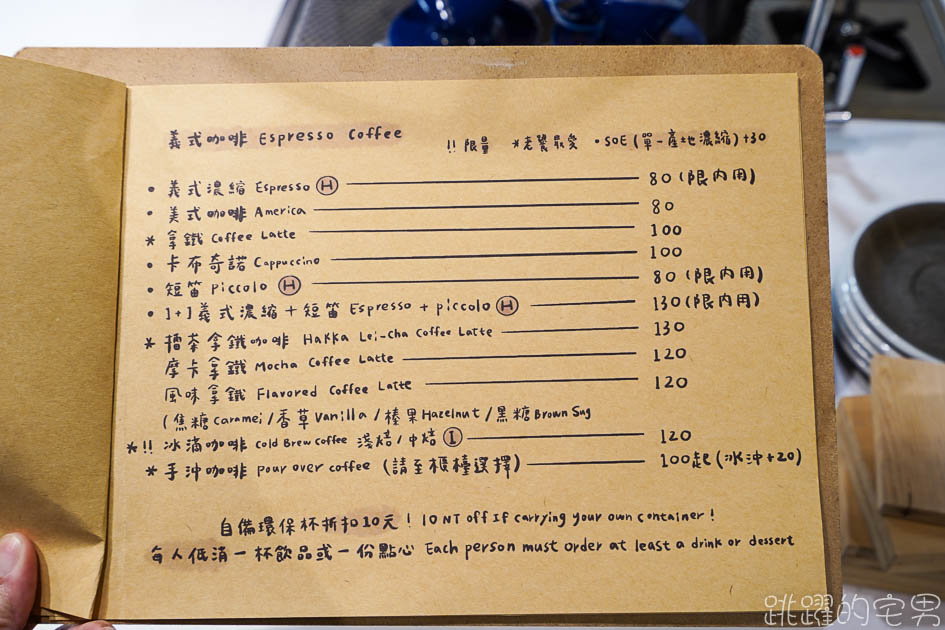 義式咖啡 Espresso Coffee
!! 限量 *老饕最愛 •SOE (單一產地濃縮)+30
• 義式濃縮 Espresso Ⓗ 80 (限內用)
• 美式咖啡 America 80
* 拿鐵 Coffee Latte 100
• 卡布奇諾 Cappuccino 100
• 短笛 piccolo Ⓗ 80 (限內用)
• 1+1義式濃縮+短笛 Espresso + piccolo Ⓗ 130 (限內用)
* 擂茶拿鐵咖啡 Hakka Lei-cha Coffee Latte 130
摩卡拿鐵 Mocha Coffee Latte 120
風味拿鐵 Flavored Coffee Latte 120
(焦糖 Caramei/香草 Vanilla/榛果 Hazelnut/黑糖 Brown Sug
*!! 冰滴咖啡 Cold Brew Coffee 淺焙/中焙 Ⓘ 120
* 手沖咖啡 pour over coffee (請至櫃檯選擇) 100起 (冰沖+20)
自備環保杯折扣10元! 10 NT off If carrying your own container!
每人低消一杯飲品或一份點心 Each person must order at least a drink or dessert
跳躍的宅男